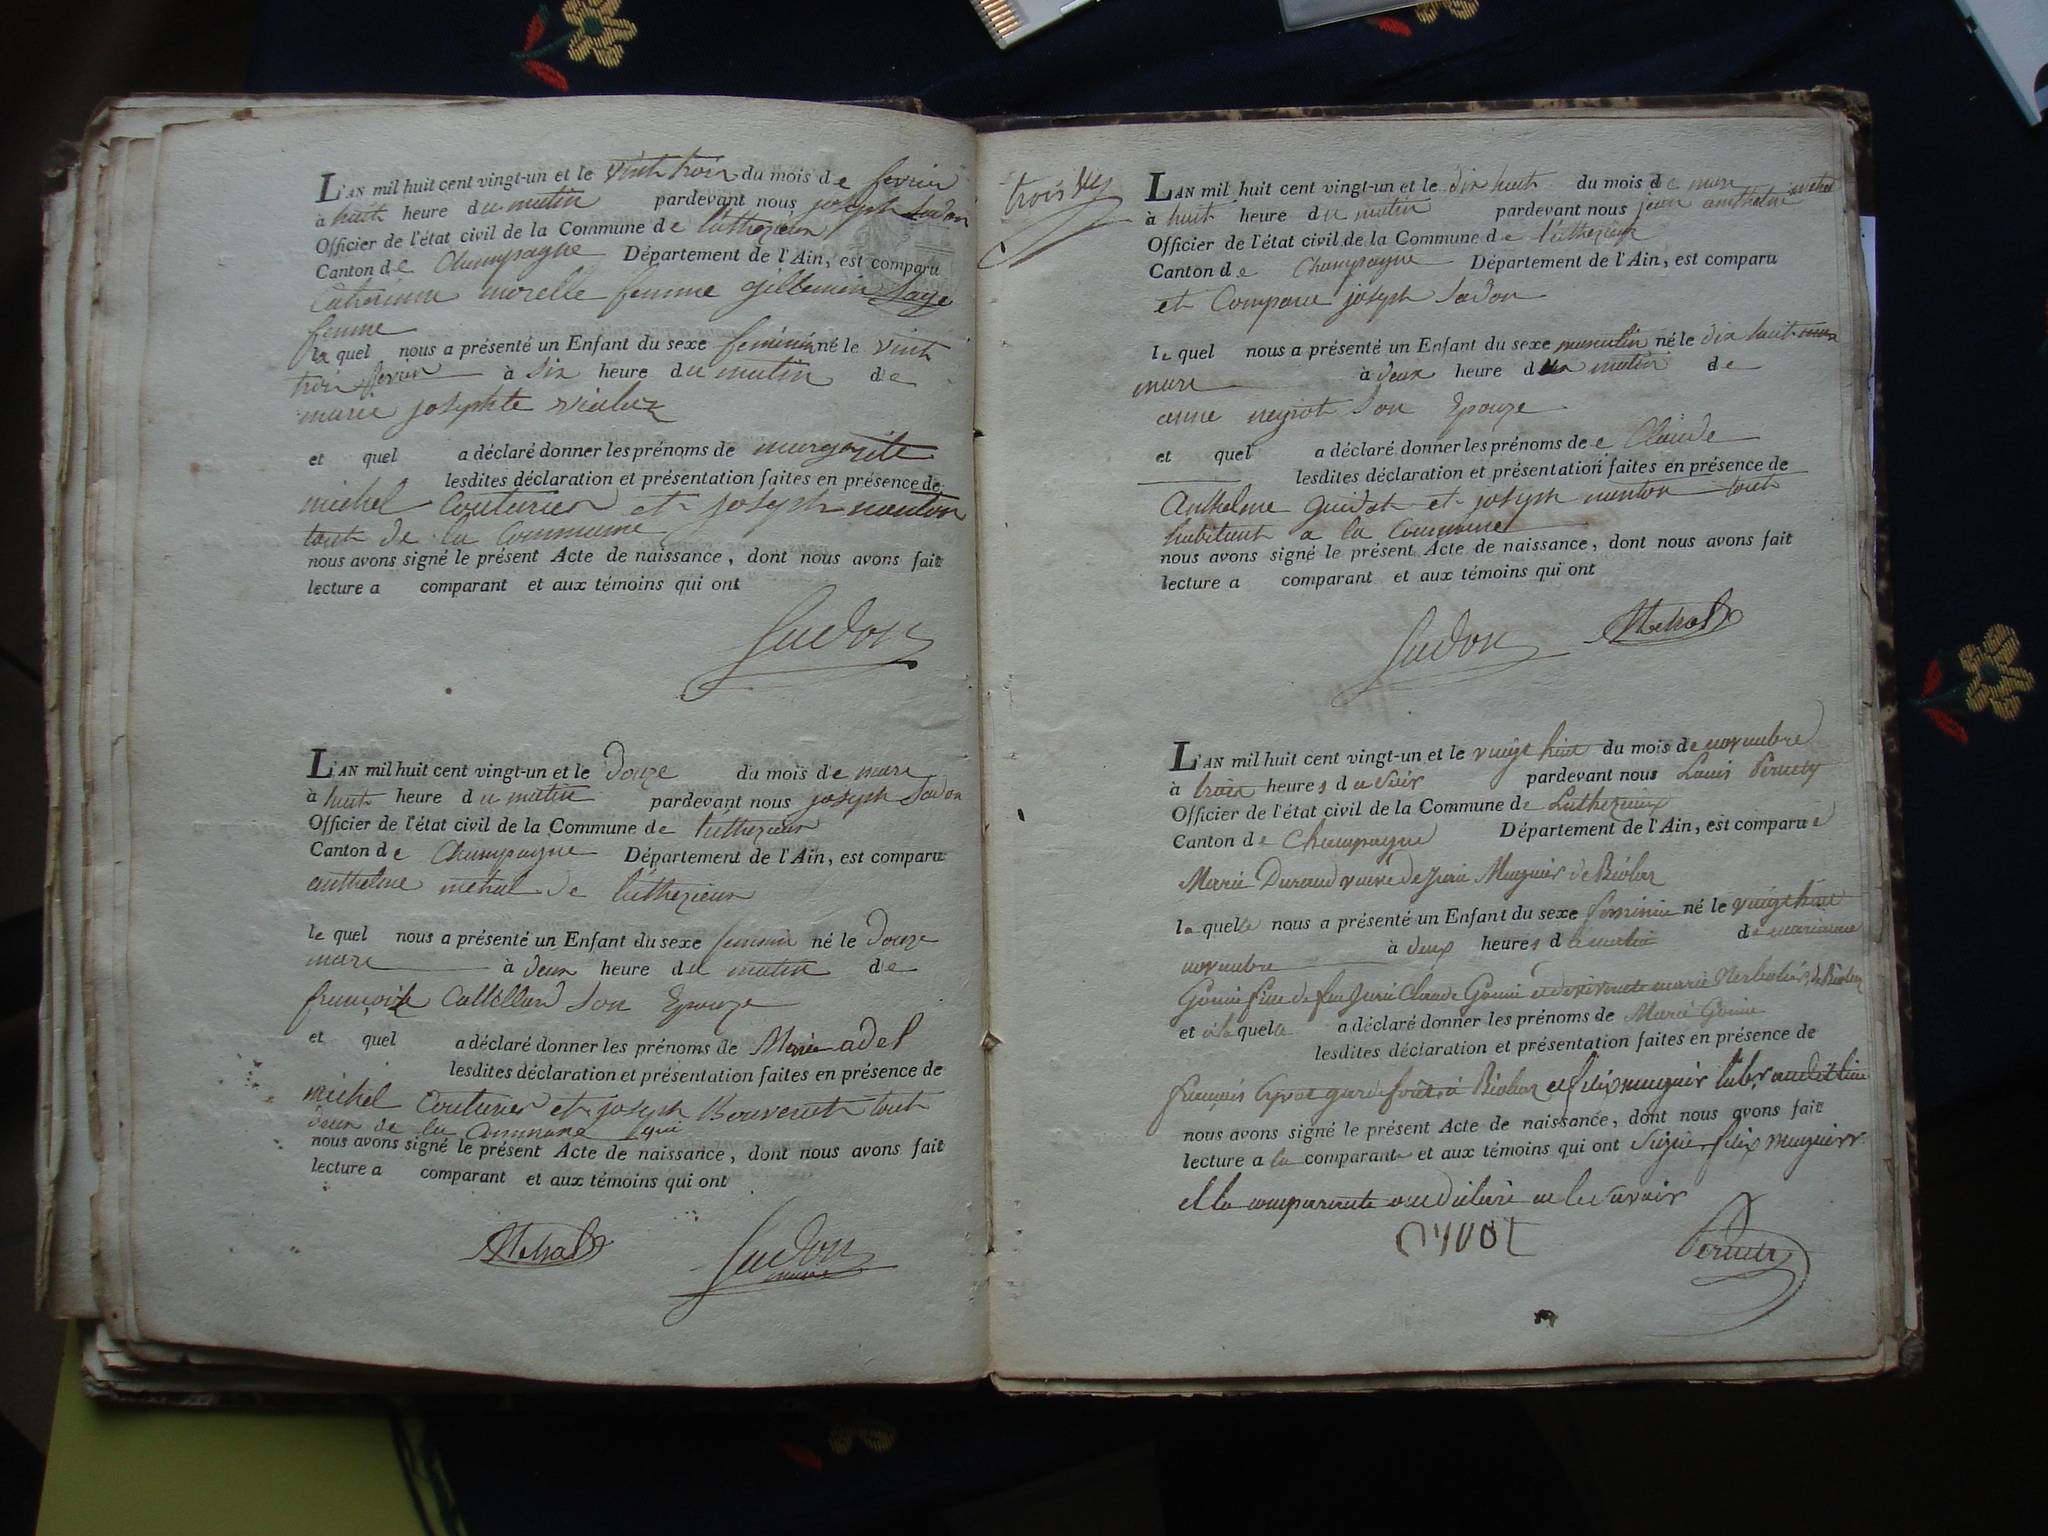 L'AN mil huit cent vingt-un et le vint trois du mois de fevrier
à huit heure du matin pardevant nous joseph Sadon
Officier de l'état civil de la Commune de luthezieux
Canton de Champagne Département de l'Ain, est comparu
Catherinne morelle femme gillberin Sage
femme
la quel nous a présenté un Enfant du sexe feminin né le vint
trois fevrier à six heure du matin de
marie josephte
et quel a déclaré donner les prénoms de margarite
lesdites déclaration et présentation faites en présence de
michel Couturier et joseph nanton
tout de la Commune
nous avons signé le présent Acte de naissance, dont nous avons fait
lecture a comparant et aux témoins qui ont
Sadon
L'AN mil huit cent vingt-un et le douze du mois de mars
à huit heure du matin pardevant nous joseph Sadon
Officier de l'état civil de la Commune de luthezieux
Canton de Champagne Département de l'Ain, est comparu
anthelme métral de luthezieux
le quel nous a présenté un Enfant du sexe feminin né le douze
mars à deux heure du matin de
françoise son Epouze
et quel a déclaré donner les prénoms de Marie adel
lesdites déclaration et présentation faites en présence de
michel Couturier et joseph Bouverest tout
deux de la Commune
nous avons signé le présent Acte de naissance, dont nous avons fait
lecture a comparant et aux témoins qui ont
Metral
Sadon
maire
trois
L'AN mil huit cent vingt-un et le dix huit du mois de mars
à huit heure du matin pardevant nous jean anthelme métral
Officier de l'état civil de la Commune de luthezieux
Canton de Champagne Département de l'Ain, est comparu
et Comparu joseph Sadon
le quel nous a présenté un Enfant du sexe masculin né le dix huit
mars à deux heure du matin de
anne neyrot son Epouze
et quel a déclaré donner les prénoms de Claude
lesdites déclaration et présentation faites en présence de
Anthelme guidot et joseph nanton tout
habitant a la Commune
nous avons signé le présent Acte de naissance, dont nous avons fait
lecture a comparant et aux témoins qui ont
Sadon Metral
L'AN mil huit cent vingt-un et le vingt huit du mois de novembre
à trois heures du soir pardevant nous Louis
Officier de l'état civil de la Commune de Luthezieux
Canton de Champagne Département de l'Ain, est comparue
Marie Durand veuve de Muynier de Biolaz
la quelle nous a présenté un Enfant du sexe feminin né le vingt huit
novembre à deux heures du matin de marianne
Gonin fille de feu Claude Gonin et de vivante marie de Biolaz
et à la quelle a déclaré donner les prénoms de Marie Gonin
lesdites déclaration et présentation faites en présence de
françois garde forêt à Biolaz et felix muynier
nous avons signé le présent Acte de naissance, dont nous avons fait
lecture a la comparante et aux témoins qui ont signé felix muynier
et la comparante